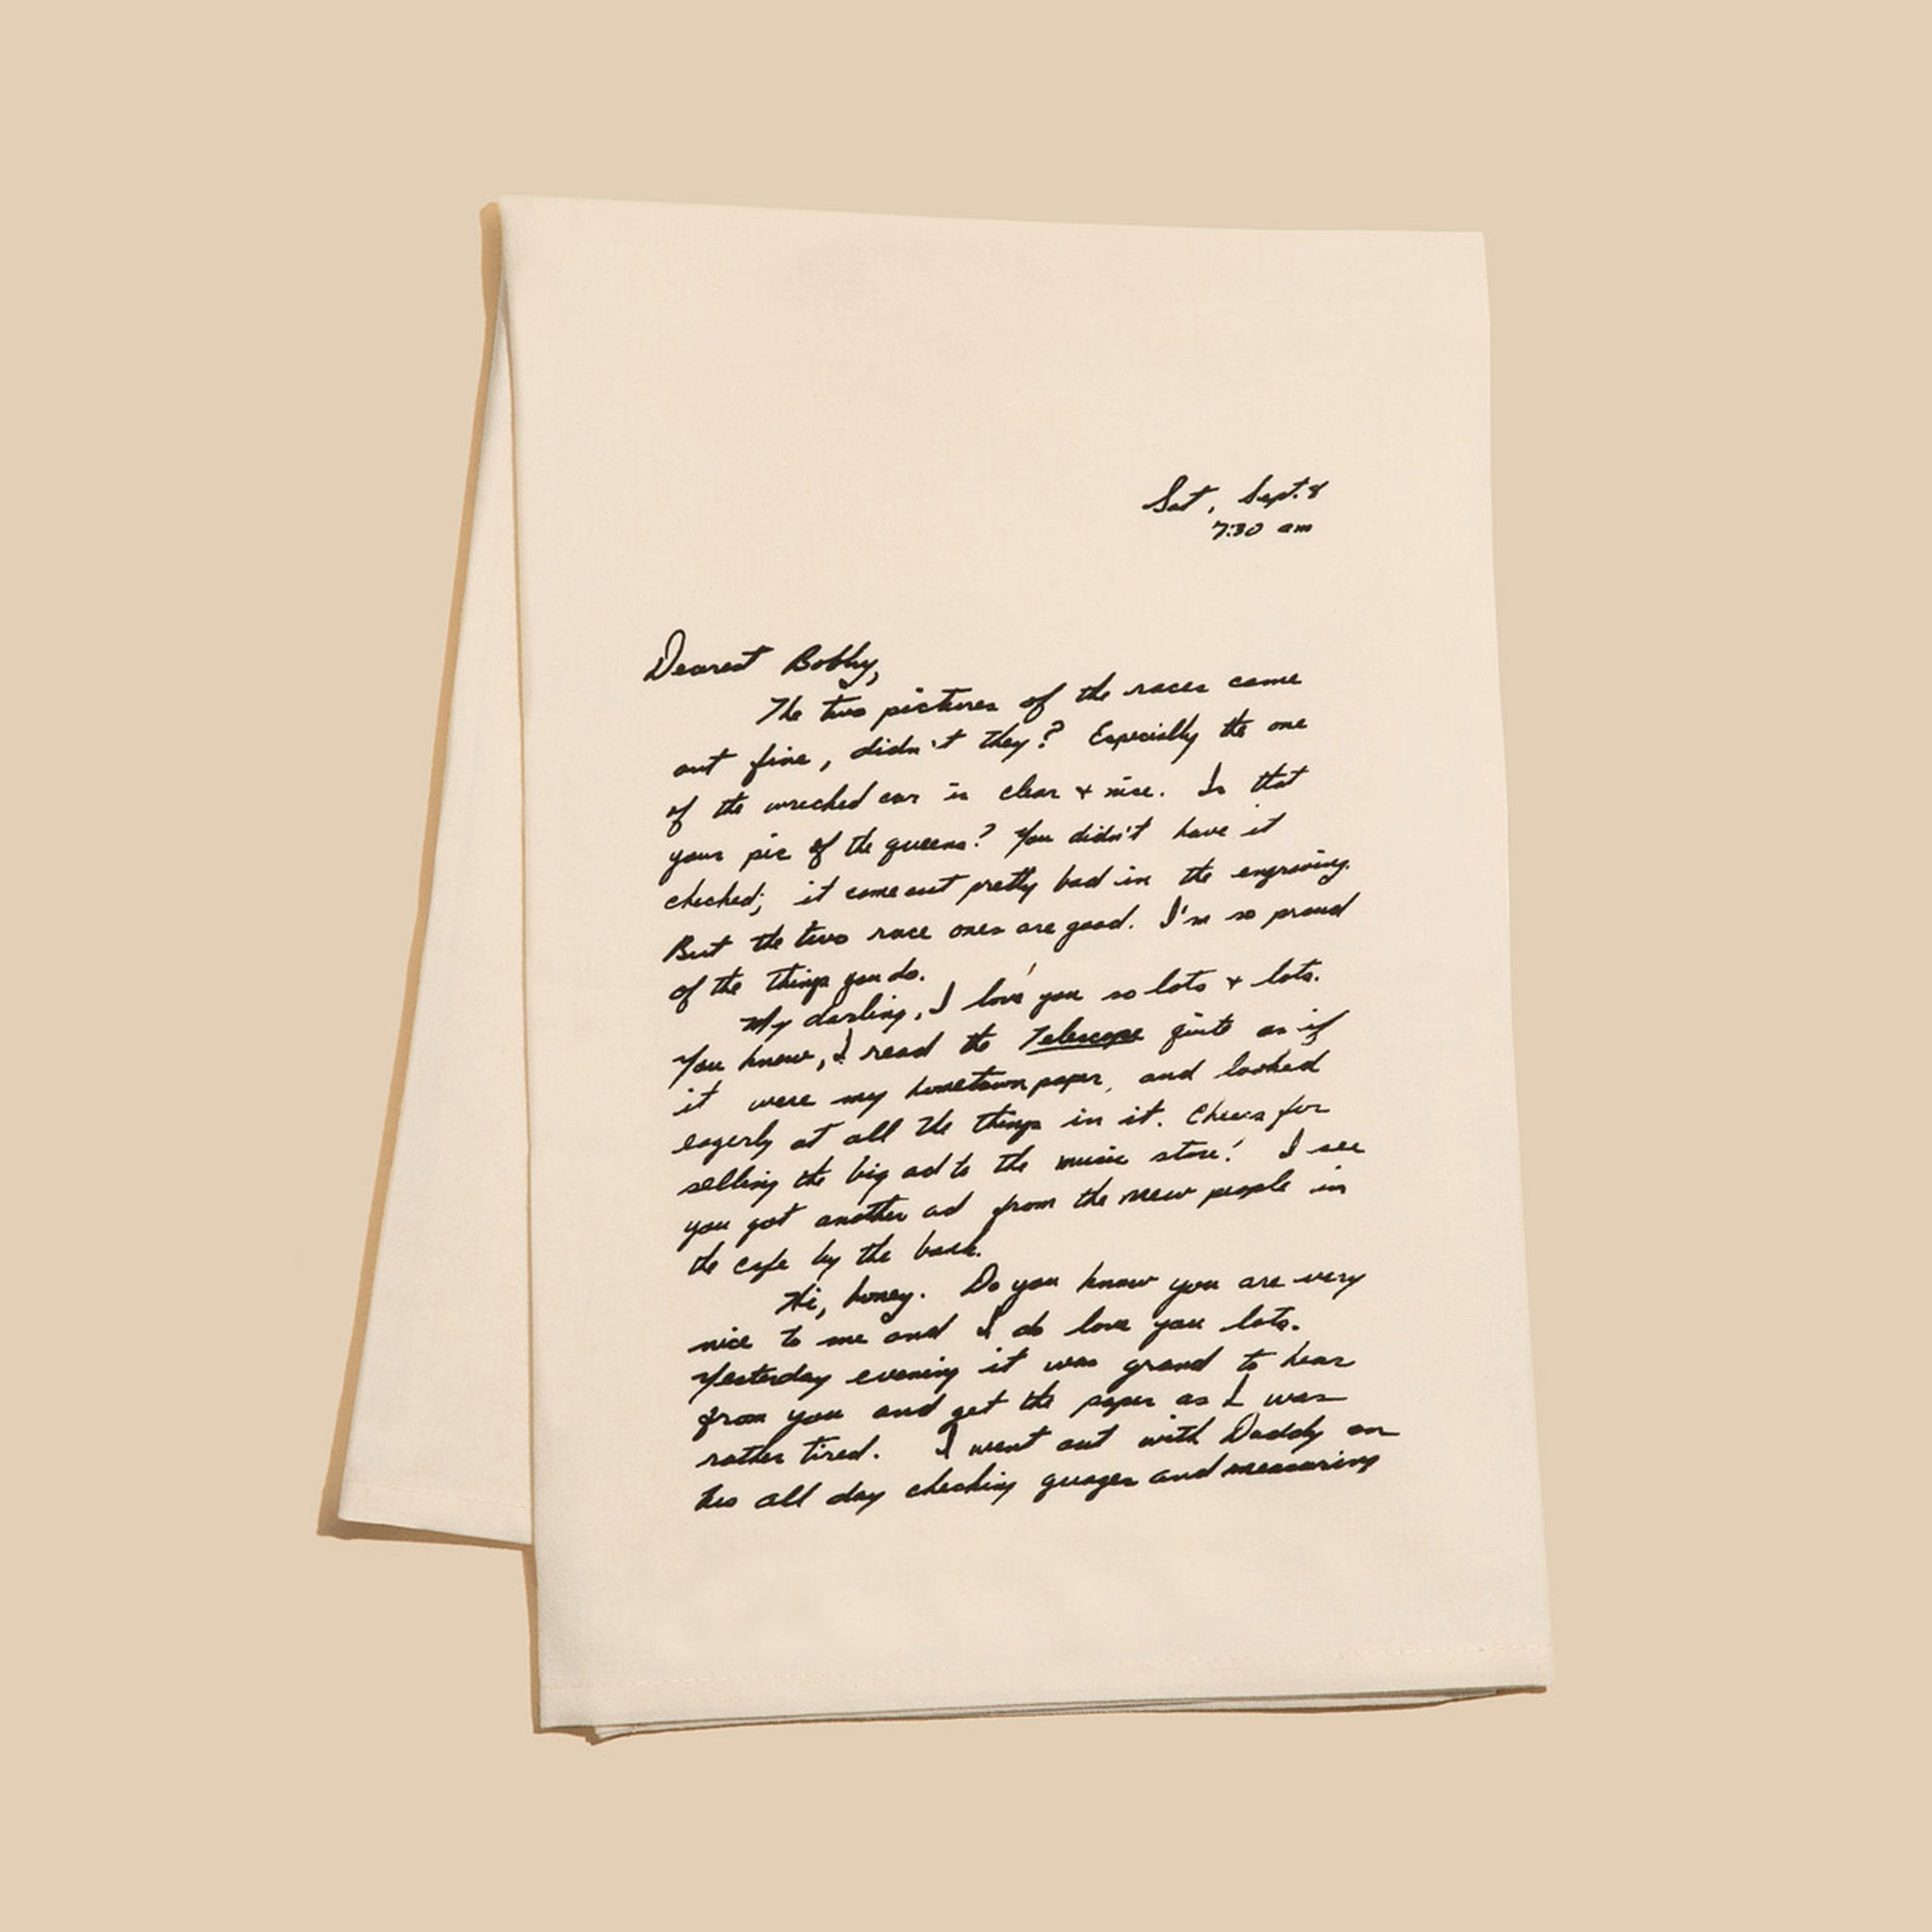 Sat, Sept. 8
7:30 am
Dearest Bobby,
The two pictures of the races came
out fine, didn't they? Especially the one
of the wrecked car is clear + nice. Is that
your pic of the queens? You didn't have it
checked; it came out pretty bad in the engraving.
But the two race ones are good. I'm so proud
of the things you do.
My darling, I love you so lots + lots.
You know, I read the Telescope quite as if
it were my hometown paper, and looked
eagerly at all the things in it. Cheers for
selling the big ad to the music store! I see
you got another ad from the new people in
the cafe by the bank.
Hi, honey. Do you know you are very
nice to me and I do love you lots.
Yesterday evening it was grand to hear
from you and get the paper as I was
rather tired. I went out with Daddy on
his all day checking guages and measuring